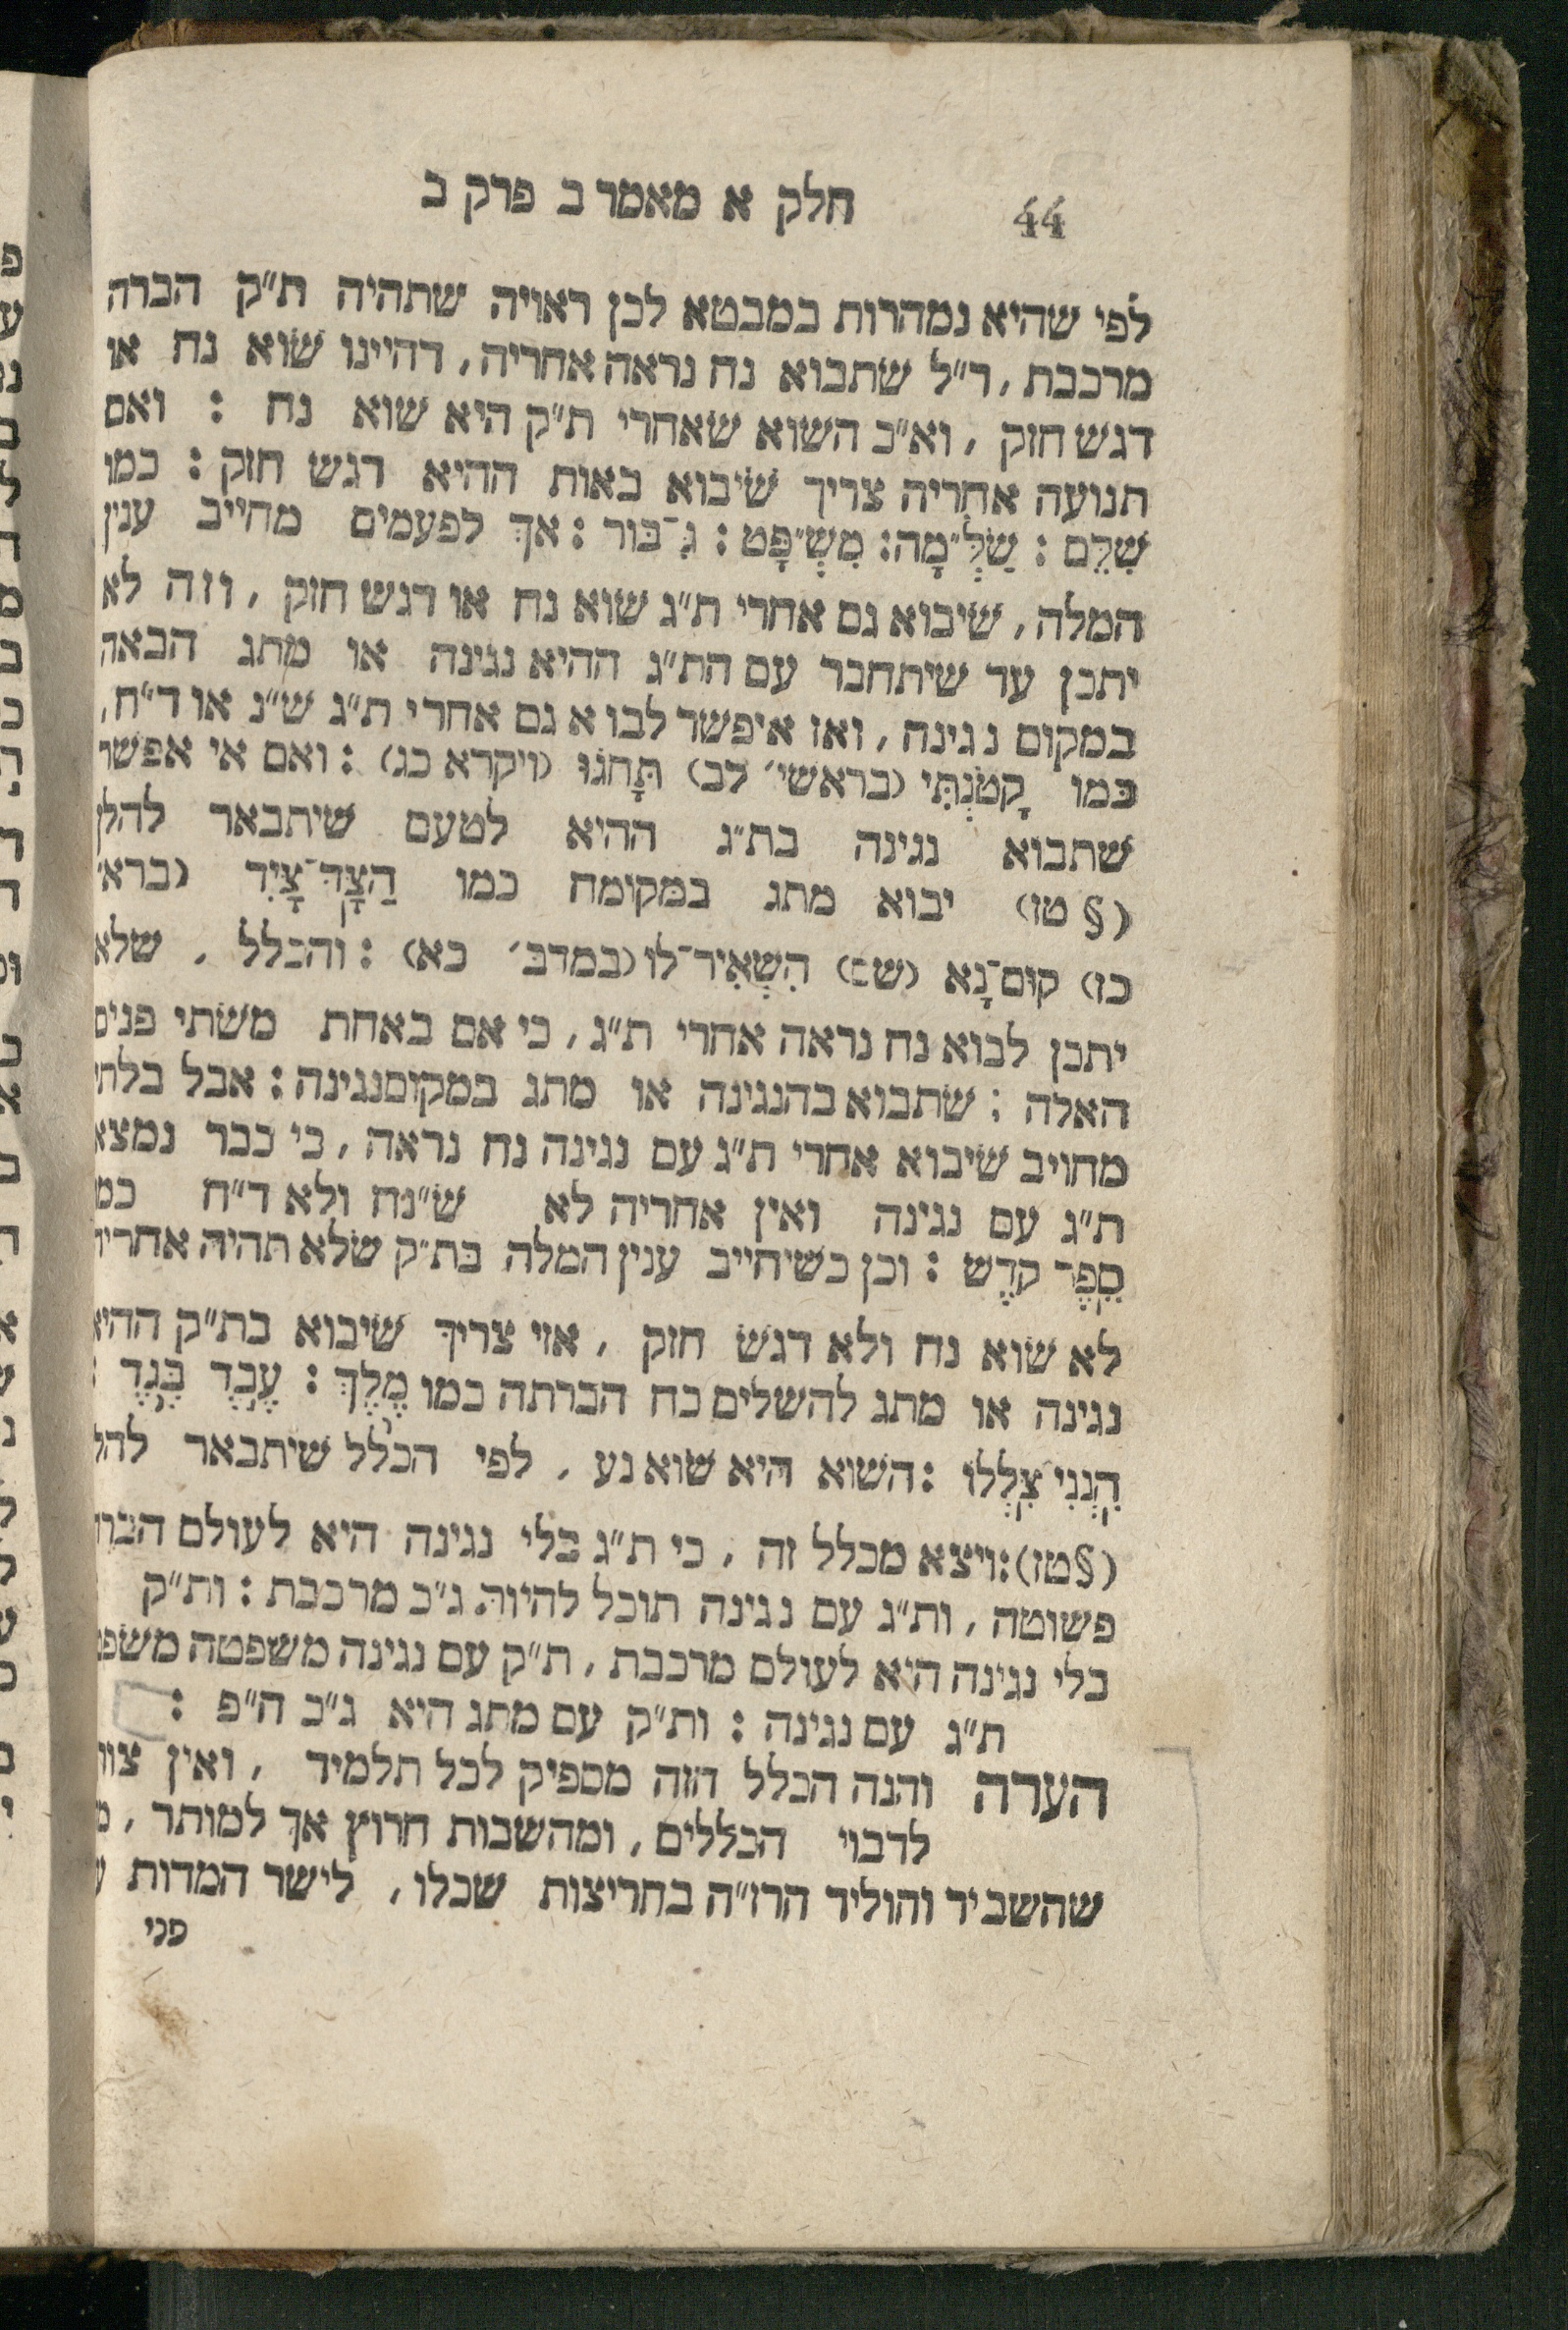 44 חלק א מאמר ב פרק ב
לפי שהיא נמהרות במבטא לכן ראויה שתהיה ת״ק הברה
מרכבת, ר״ל שתבוא נח נראה אחריה, דהיינו שוא נח או
דגש חזק, וא״כ השוא שאחרי ת״ק היא שוא נח : ואם
תנועה אחריה צריך שיבוא באות ההיא דגש חזק : כמו
שִׁלֵּם : שַׂלְ״מָה: מִשְ״פָּט : גִּ־בּור : אך לפעמים מחייב ענין
המלה, שיבוא גם אחרי ת״ג שוא נח או דגש חזק, וזה לא
יתכן עד שיתחבר עם הת״ג ההיא נגינה או מתג הבאה
במקום נגינה, ואז איפשר לבוא גם אחרי ת״ג ש״נ או ד״ח,
כמו קָטֹנְתִּי (בראשי׳ לב) תָּחֹגּוּ (ויקרא כג) : ואם אי אפשר
שתבוא נגינה בת״ג ההיא לטעם שיתבאר להלן
(§ טז) יבוא מתג במקומה כמו הַצָּד־צָיִד (ברא׳
כז) קום־נָא (שם) הִשְׁאִיר־לו (במדב׳ כא) : והכלל, שלא
יתכן לבוא נח נראה אחרי ת״ג, כי אם באחת משתי פנים
האלה : שתבוא בהנגינה או מתג במקוםנגינה : אבל בלתי
מחויב שיבוא אחרי ת״ג עם נגינה נח נראה, כי כבר נמצא
ת״ג עם נגינה ואין אחריה לא ש״נח ולא ד״ח כמ
סֵפֶר קדֶש : וכן כשיחייב ענין המלה בת״ק שלא תהיה אחריה
לא שוא נח ולא דגש חזק, אזי צריך שיבוא בת״ק ההיא
נגינה או מתג להשלים כח הברתה כמו מֶלֶךְ : עֶבֶד בֶּגֶד :
הִנְנִי צִלְלוּ : השוא היא שוא נע, לפי הכלל שיתבאר להל
(§טז): ויצא מכלל זה, כי ת״ג בלי נגינה היא לעולם הברה
פשוטה, ות״ג עם נגינה תוכל להיות ג״כ מרכבת : ות״ק
בלי נגינה היא לעולם מרכבת, ת״ק עם נגינה משפטה משפט
ת״ג עם נגינה : ות״ק עם מתג היא ג״כ ה״פ :
הערה והנה הכלל הזה מספיק לכל תלמיד, ואין צור
לרבוי הכללים, ומהשבות חרוץ אך למותר,
שהשביר והוליד הרז״ה בחריצות שכלו, לישר המדות
פני